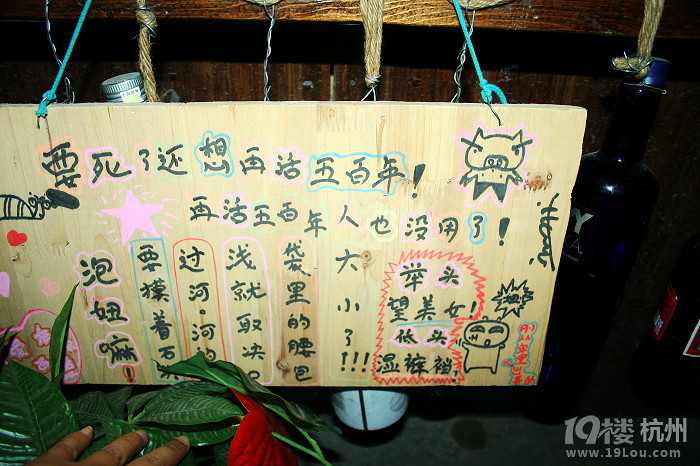 要死了还想再活五百年！
再活五百年人也没用了！
泡妞嘛！
要摸着石
过河。河的
浅就取决。
袋里的腰包
大小了!!!
举头
望美女！
低头
湿裤裆，
19楼 杭州
www.19Lou.com